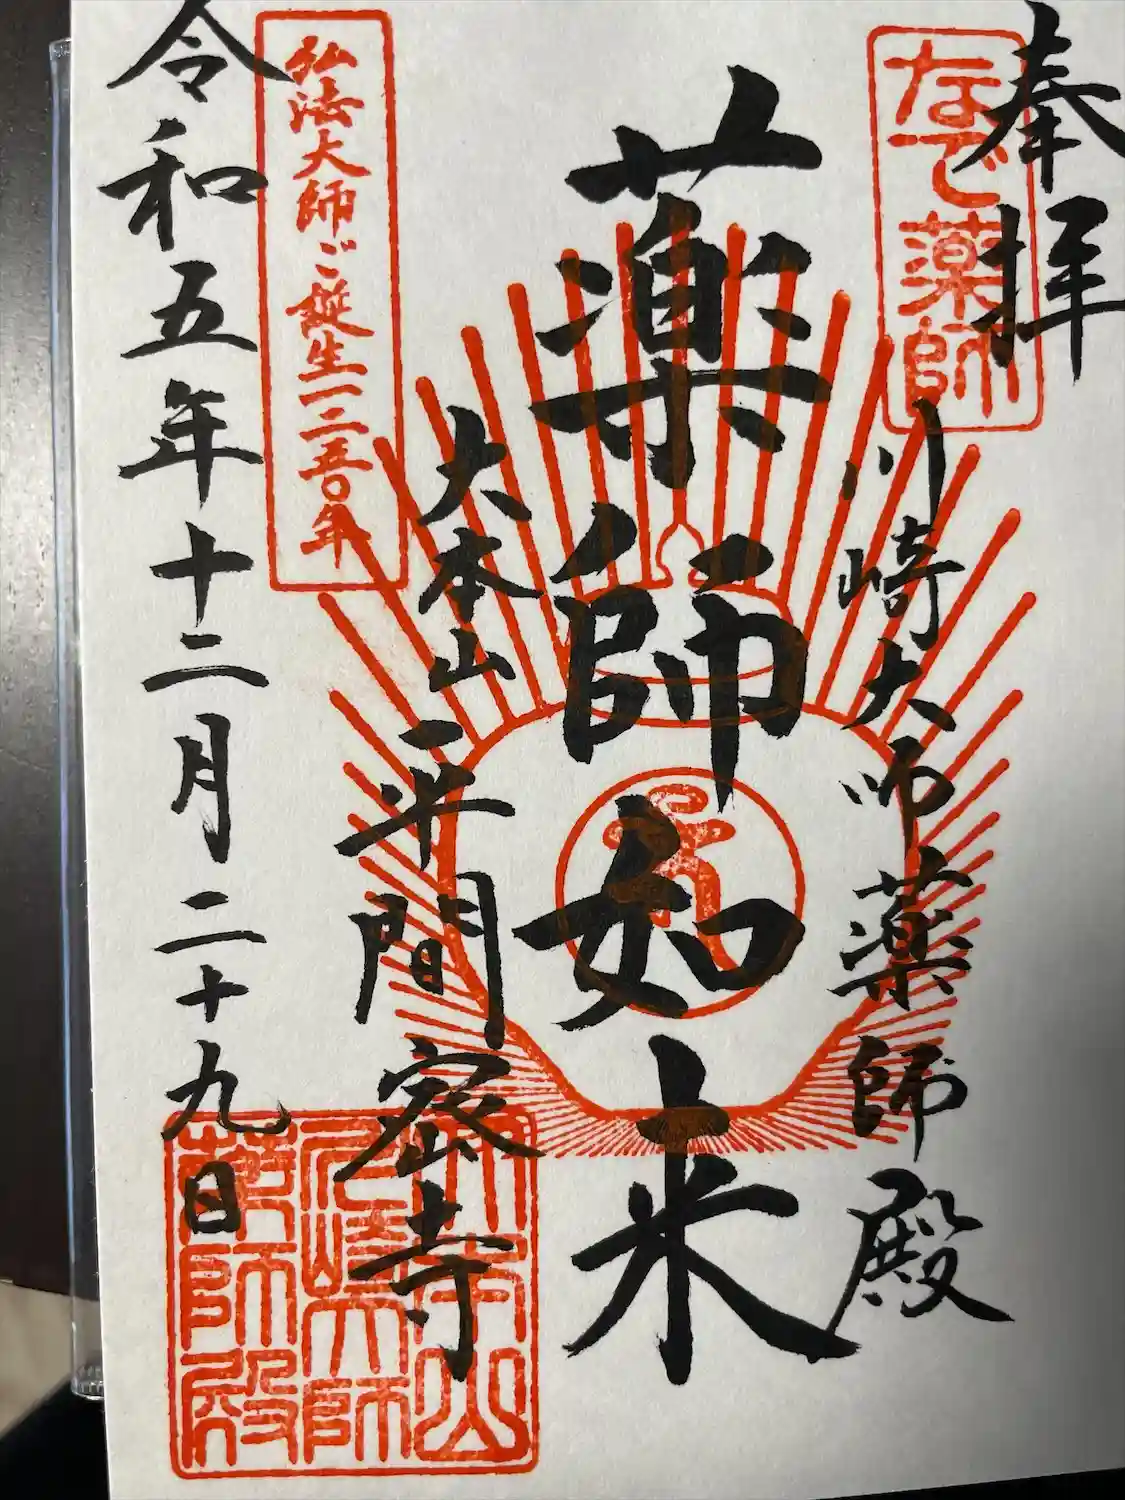 奉拝
なで薬師
川崎大師薬師殿
薬師如来
大本山
平間寺
弘法大師ご誕生一二五〇年
令和五年十二月二十九日
大本山
川崎大師
薬師殿